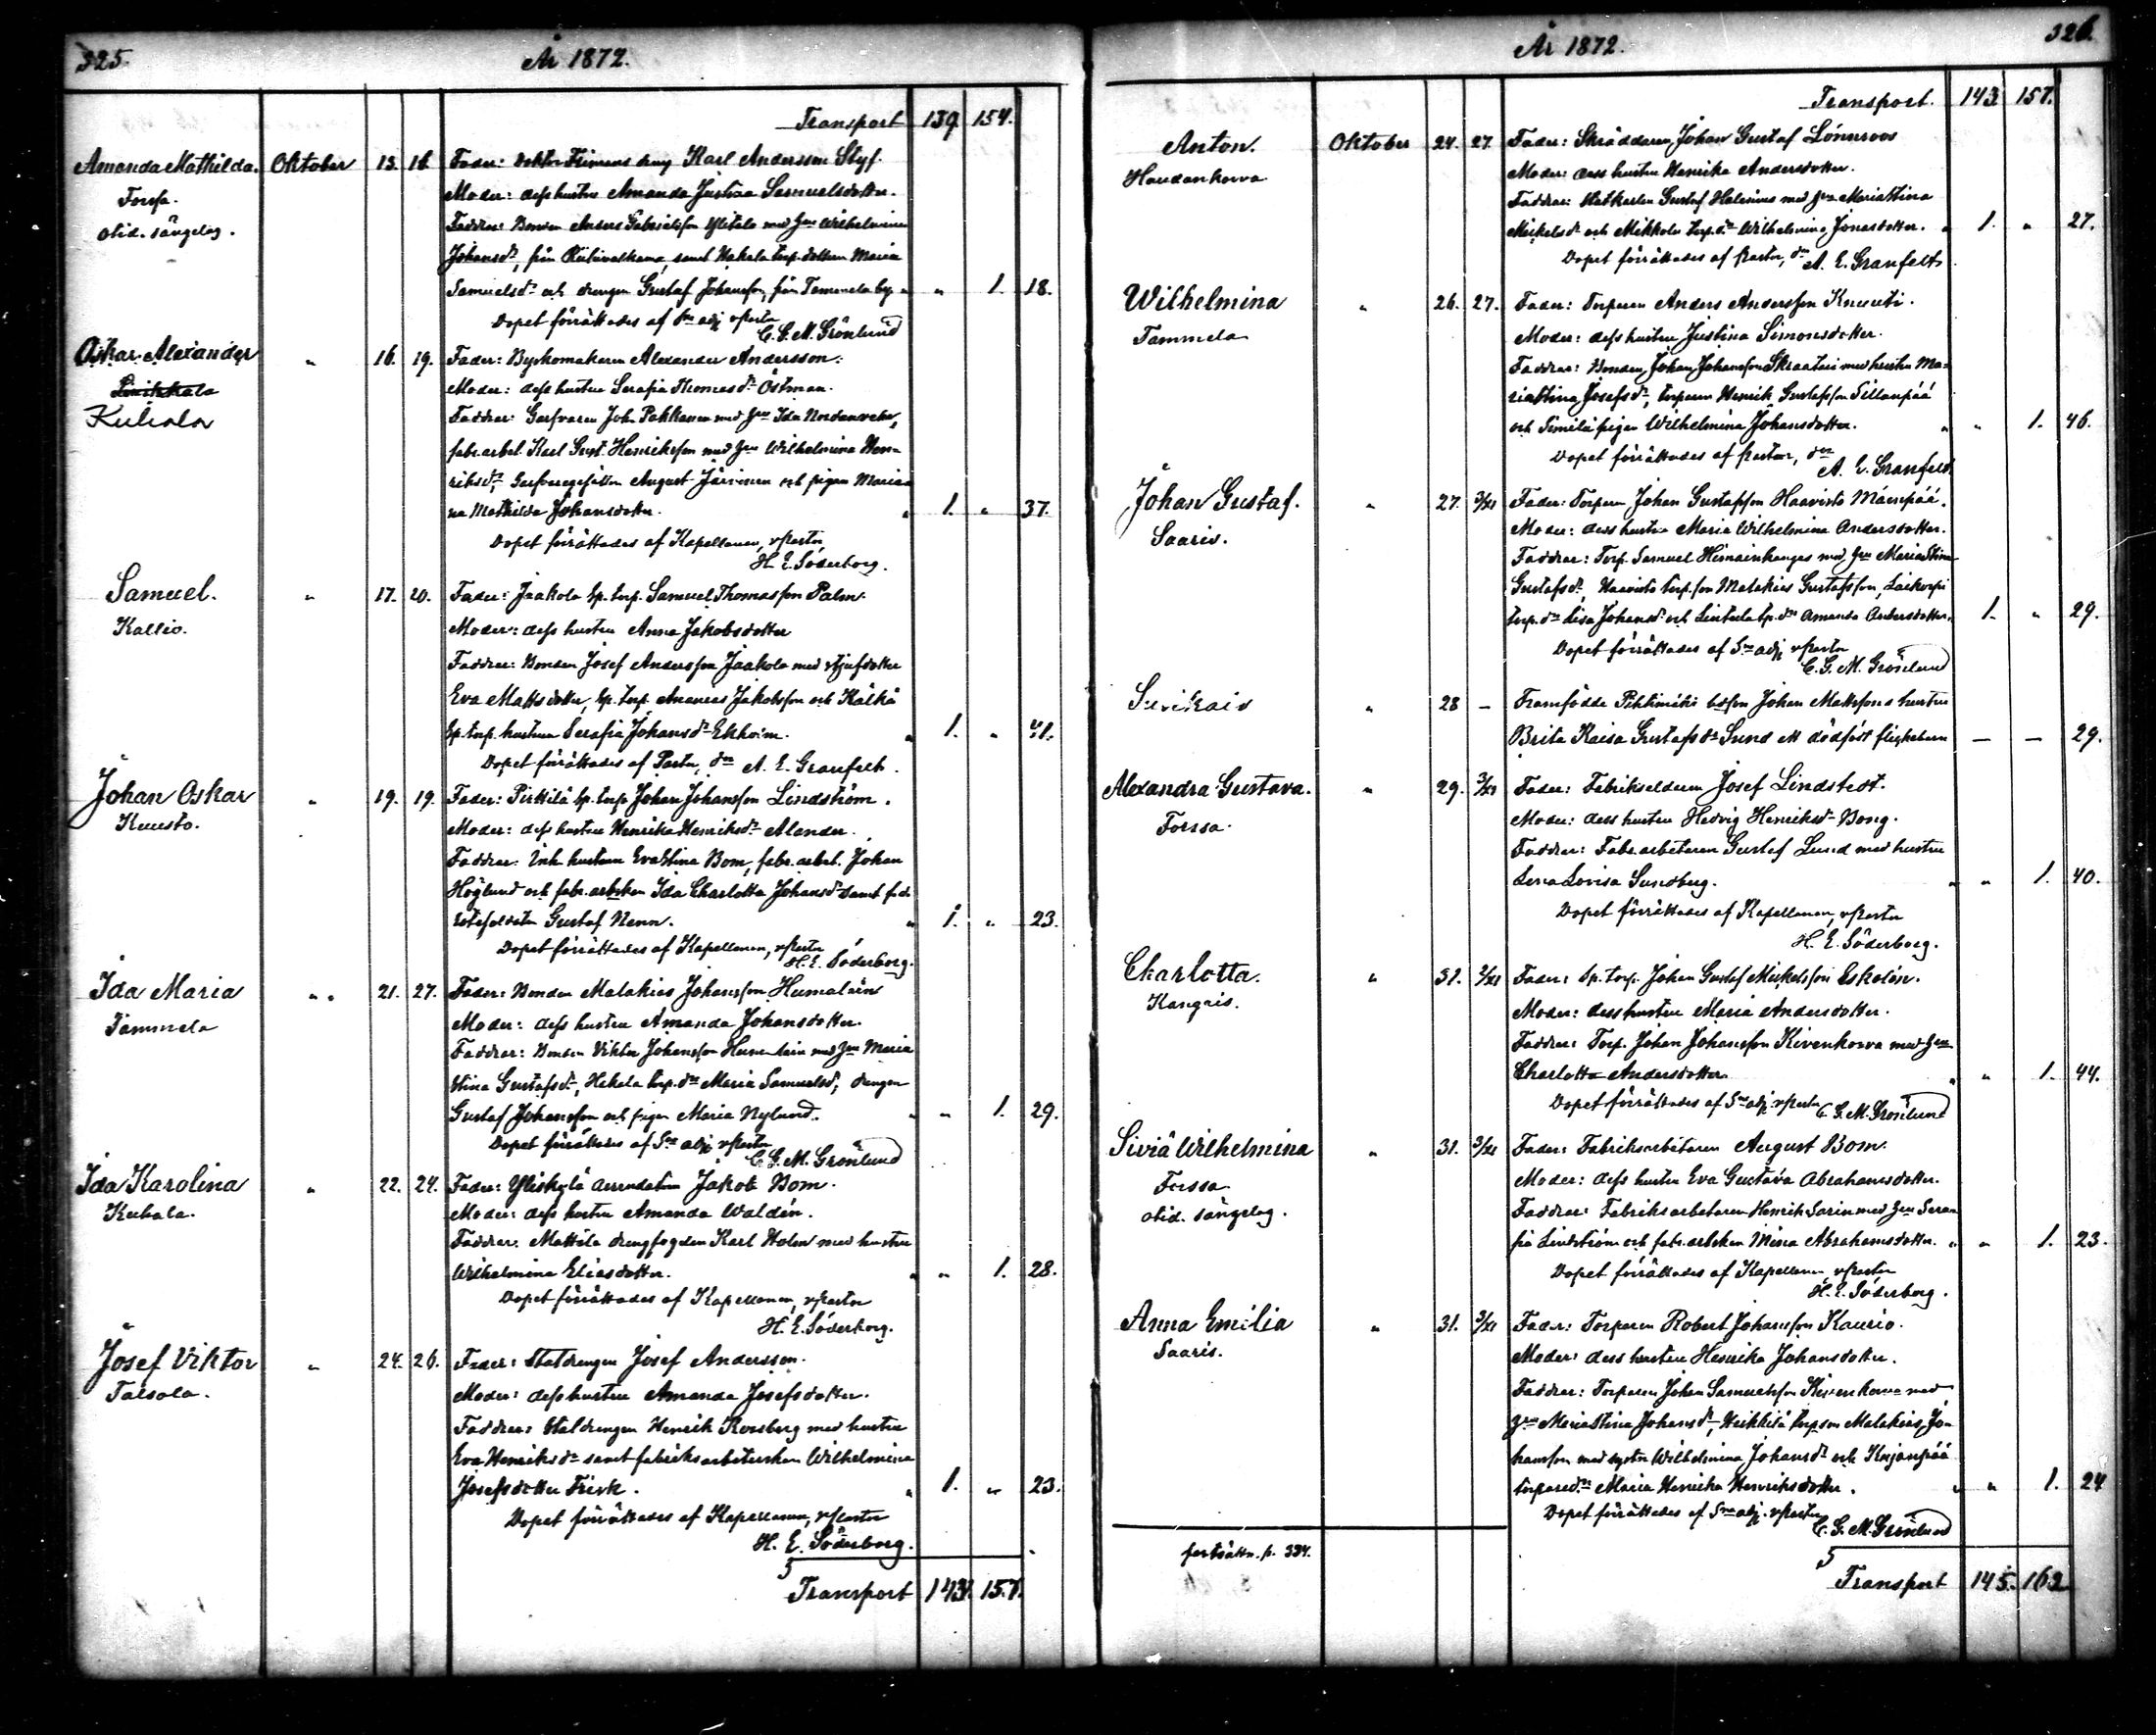 325.
År 1872.
Transport 139 154.
Amanda Mathilda. Oktober 13. 16. Fader: Karl Andersson Styf.
Forssa. Moder: dess hustru Amanda Justina Samuelsdotter.
otid. sängelag. Faddrar: Bonden Anders Gabrielsson Ylitalo med hru Wilhelmina
Johansdr, från samt Hakala torp.dottern Maria
Samuelsdr och drengen Gustaf Johansson, från Tammela by " " 1. 18.
Dopet förrättades af Sne adj vPastor
C. G. M. Grönlund
Oskar Alexander " 16. 19. Fader: Byskomakaren Alexander Andersson.
Moder: dess hustru Serafia Thomasdr Östman.
Kuhala Faddrar: Garfvaren Joh. Pakkanen med hru Ida
fabr.arbet. Karl Gust. Henriksson med hru Wilhelmina Hen-
riksdr, Garfvaregesällen August Järvinen och pigan Maria
na Mathilda Johansdotter. " 1. " 37.
Dopet förrättades af Kapellanen, vPastor
H. E. Söderborg.
Samuel. " 17. 20. Fader: Jaakola sp. torp. Samuel Thomasson Palm.
Kallio. Moder: dess hustru Anna Jakobsdotter
Faddrar: Bonden Josef Andersson Jaakola med styfdotter
Eva Mattsdotter, sp. torp. Ananias Jakobsson och Kälkä
sp. torp. hustrun Serafia Johansdr Ekholm. " 1. " 41.
Dopet förrättades af Pastor, dn A. E. Granfelt.
Johan Oskar " 19. 19. Fader: Pirttilä sp. torp. Johan Johansson Lindström.
Kuusto. Moder: dess hustru Henrika Henriksdr Alander.
Faddrar: Inh. hustrun Eva Stina Bom, fabr. arbet. Johan
Höglund och fabr. arbskan Ida Charlotta Johansdr samt f.d.
rotesoldaten Gustaf Renn. " 1. " 23.
Dopet förrättades af Kapellanen, vPastor
H. E. Söderborg.
Ida Maria " 21. 27. Fader: Bonden Malakias Johansson Humalain
Tammela Moder: dess hustru Amanda Johansdotter.
Faddrar: Bonden Viktor Johansson Humalain med hru Maria
Stina Gustafsdr, Hakala torp.dn Maria Samuelsdr, drengen
Gustaf Johansson och pigan Maria Nylund. " " 1. 29.
Dopet förrättades af Sne adj vPastor
C. G. M. Grönlund
Ida Karolina " 22. 24. Fader: Yliskylä arrendatorn Jakob Bom.
Kuhala. Moder: dess hustru Amanda Waldén.
Faddrar: Mattila drengfogden Karl Holm med hustru
Wilhelmina Eliasdotter. " " 1. 28.
Dopet förrättades af Kapellanen, vPastor
H. E. Söderborg.
Josef Viktor " 24. 26. Fader: Staldrengen Josef Andersson.
Talsola. Moder: dess hustru Amanda Josefsdotter.
Faddrar: Staldrengen Henrik Korsberg med hustru
Eva Henriksdr samt fabriksarbeterskan Wilhelmina
Josefsdotter Frisk. " 1. " 23.
Dopet förrättades af Kapellanen, vPastor
H. E. Söderborg.
Transport 143. 157.
326.
År 1872.
Transport. 143. 157.
Anton. Oktober 24. 27. Fader: Skräddaren Johan Gustaf Lönnroos
Haudankorva Moder: dess hustru Henrika Andersdotter.
Faddrar: Gustaf Helenius med hru Maria Stina
Mickelsdr och Mikkola torp.dn Wilhelmina Jonasdotter. " 1. " 27.
Dopet förrättades af Pastor, dn A. E. Granfelt.
Wilhelmina " 26. 27. Fader: Torparen Anders Andersson Knuuti.
Tammela Moder: dess hustru Justina Simonsdotter.
Faddrar: Bonden, Johan Johansson Skraatari med hustru Ma-
ria Stina Josefsdr, torparen Henrik Gustafsson Sillanpää
och Simila pigan Wilhelmina Johansdotter. " " 1. 46.
Dopet förrättades af Pastor, dn
A. E. Granfelt.
Johan Gustaf. " 27. 3/XI Fader: Torparen Johan Gustafsson Haavisto Mäenpää.
Saaris. Moder: dess hustru Maria Wilhelmina Andersdotter.
Faddrar: Torp. Samuel Heinäinkangas med hru Maria Stina
Gustafsdr, Haavisto torp.son Malakias Gustafsson,
torp.dn Lisa Johansdr och Lintula tp.dn Amanda Andersdotter. 1. " 29.
Dopet förrättades af Sne adj vPastor
C. G. M. Grönlund
" 28 – Framfödde Pihtimäki Johan Mattssons hustru
Brita Kaisa Gustafsdr Sund ett dödfödt flickebarn — — 29.
Alexandra Gustava. " 29. 3/XI Fader: Fabrikseldaren Josef Lindstedt.
Forssa. Moder: dess hustru Hedvig Henriksdr Bong.
Faddrar: Fabr.arbetaren Gustaf Lund med hustru
Lena Lovisa Sundberg. " " 1. 40.
Dopet förrättades af Kapellanen, vPastor
H. E. Söderborg.
Charlotta. " 31. 3/XI Fader: Sp. torp. Johan Gustaf Mickelsson Eskolin.
Kangais. Moder: dess hustru Maria Andersdotter.
Faddrar: Torp. Johan Johansson Kivenkorva med hru
Charlotta Andersdotter. " " 1. 44.
Dopet förrättades af Sne adj. vPastor C. G. M. Grönlund
Siviä Wilhelmina " 31. 3/XI Fader: Fabriksarbetaren August Bom.
Forssa Moder: dess hustru Eva Gustava Abrahamsdotter.
otid. sängelag. Faddrar: Fabriksarbetaren Henrik Sarin med hru Sera
fia Lindström och fabr. arbskan Mina Abrahamsdotter. " " 1. 23.
Dopet förrättades af Kapellanen, vPastor
H. E. Söderborg.
Anna Emilia " 31. 3/XI Fader: Torparen Robert Johansson Kaurio.
Saaris. Moder: dess hustru Henrika Johansdotter.
Faddrar: Torparen Johan Samuelsson Kivenkorva med
hru Maria Stina Johansdr, Heikkilä torp.son Malakias Jo-
hansson med syster Wilhelmina Johansdr och Kujanpää
torparedn Maria Henrika Henriksdotter. " " 1. 24
Dopet förrättades af Sne adj. vPastor
C. G. M. Grönlund
fortsättn. p. 334.
Transport 145. 162